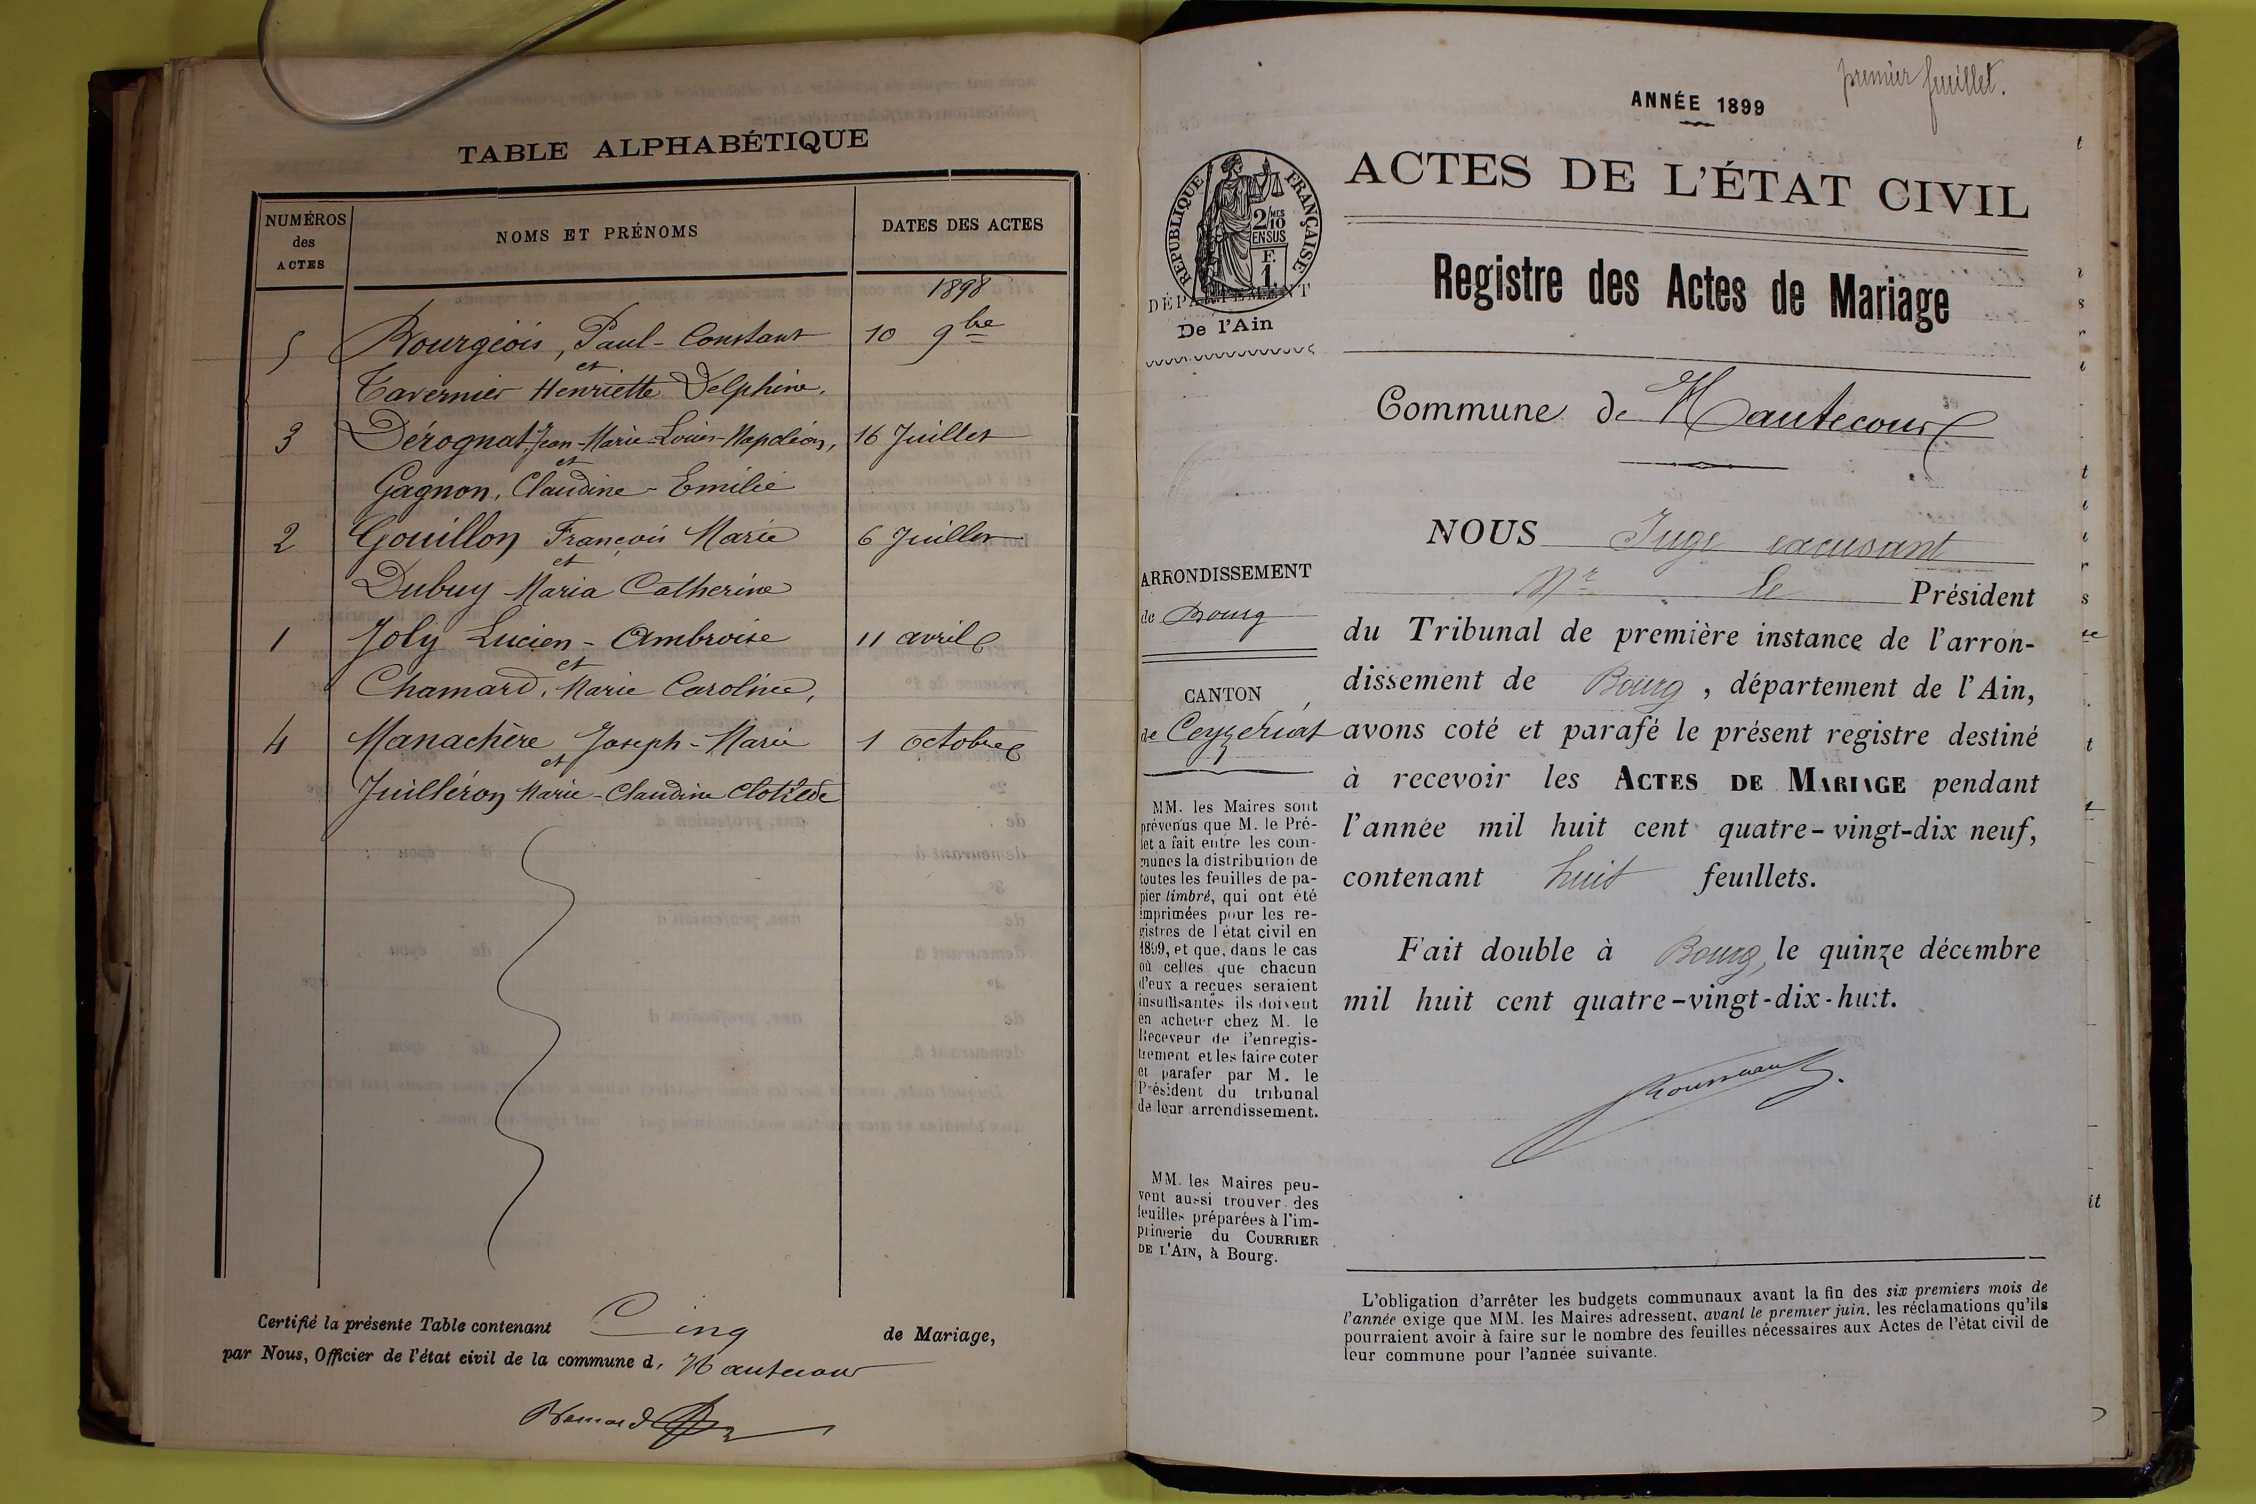 TABLE ALPHABÉTIQUE
NUMÉROS
des
ACTES
NOMS ET PRÉNOMS
DATES DES ACTES
1898
5 Bourgeois, Paul-Constant 10 9bre
et
Tavernier Henriette Delphine.
3 Dérognat, Jean-Marie-Louis-Napoléon, 16 Juillet
et
Gagnon, Claudine-Emilie
2 Gouillon François Marie 6 Juillet
et
Dubuy Maria Catherine
1 Joly Lucien-Ambroise 11 avril
et
Chamard, Marie Caroline,
4 Manachère Joseph-Marie 1 octobre
et
Juilléron Marie-Claudine Clotilde
Certifié la présente Table contenant Cinq de Mariage,
par Nous, Officier de l'état civil de la commune d, Hautecour
premier feuillet.
ANNÉE 1899
RÉPUBLIQUE FRANÇAISE
2/10 MES
EN SUS
F.
1.
DÉPARTEMENT
De l'Ain
ACTES DE L'ÉTAT CIVIL
Registre des Actes de Mariage
Commune de Hautecour
ARRONDISSEMENT
de Bourg
CANTON
de Ceyzériat
MM. les Maires sont
prévenus que M. le Pré-
fet a fait entre les com-
munes la distribution de
toutes les feuilles de pa-
pier timbré, qui ont été
imprimées pour les re-
gistres de l'état civil en
1899, et que, dans le cas
où celles que chacun
d'eux a reçues seraient
insuffisantes ils doivent
en acheter chez M. le
Receveur de l'enregis-
trement et les faire coter
et parafer par M. le
Président du tribunal
de leur arrondissement.
MM. les Maires peu-
vent aussi trouver des
feuilles préparées à l'im-
primerie du COURRIER
DE L'AIN, à Bourg.
NOUS Juge excusant
Mr le Président
du Tribunal de première instance de l'arron-
dissement de Bourg, département de l'Ain,
avons coté et parafé le présent registre destiné
à recevoir les ACTES DE MARIAGE pendant
l'année mil huit cent quatre-vingt-dix neuf,
contenant huit feuillets.
Fait double à Bourg, le quinze décembre
mil huit cent quatre-vingt-dix-huit.
L'obligation d'arrêter les budgets communaux avant la fin des six premiers mois de
l'année exige que MM. les Maires adressent, avant le premier juin, les réclamations qu'ils
pourraient avoir à faire sur le nombre des feuilles nécessaires aux Actes de l'état civil de
leur commune pour l'année suivante.